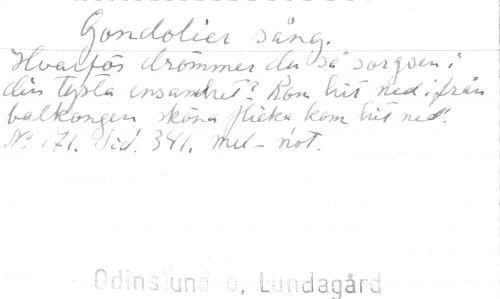 Gondolier sång.
Hvarför drömmer du så sorgsen i
din tysta ensamhet? Kom hit ned ifrån
balkongen sköna flicka kom hit ned.
No 171. Sid. 341. mel-not.
Odinslund o, Lundagård